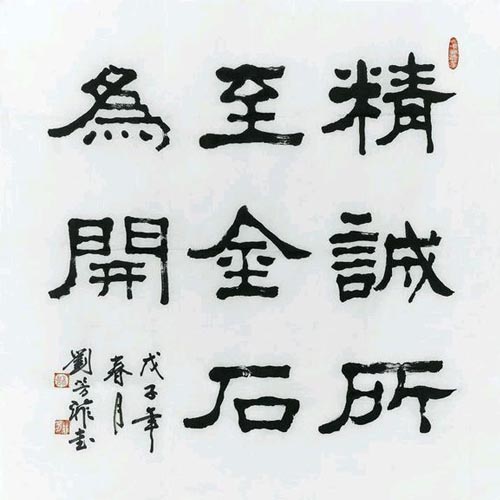 精誠所
至金石
為開
戊子年
春月
劉芳